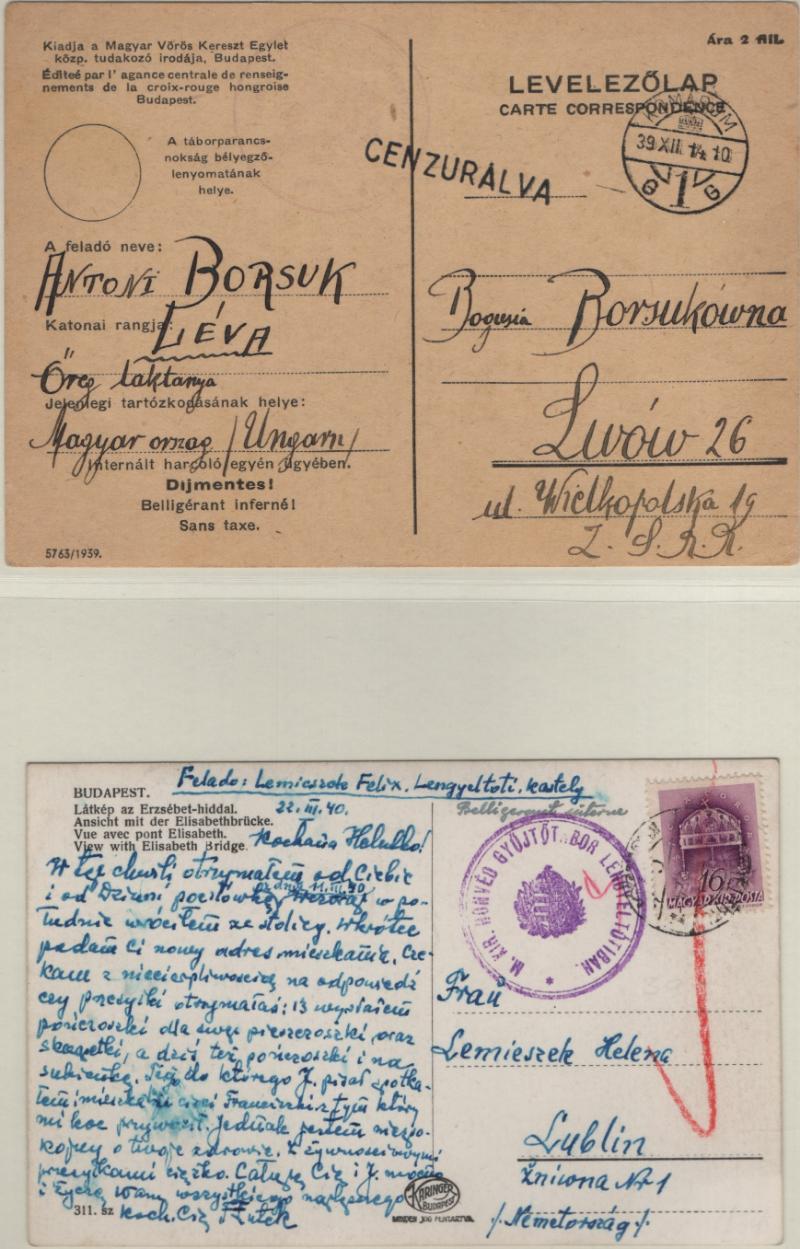 Kiadja a Magyar Vörös Kereszt Egylet
közp. tudakozó irodája, Budapest.
Éditeé par l' agance centrale de renseig-
nements de la croix-rouge hongroise
Budapest.
A táborparancs-
nokság bélyegző-
lenyomatának
helye.
A feladó neve:
ANTONI BORSUK
Katonai rangja:
LÉVA
Őreg laktanya
Jelenlegi tartózkodásának helye:
Magyarorszag /Ungarn/
Internált harcoló egyén ügyében.
Díjmentes!
Belligérant inferné!
Sans taxe.
5763/1939.
Ára 2 fill.
LEVELEZŐLAP
CARTE CORRESPONDENCE
KOMÁROM
39 XII 14 10
G 1 G
CENZURÁLVA
Bogusia Borsukówna
Lwów 26
ul. Wielkopolska 19
Z. S. R. R.
Felado: Lemieszek Felix. Lengyeltoti. kastely
BUDAPEST.
Látkép az Erzsébet-hiddal.
22. III. 40.
Ansicht mit der Elisabethbrücke.
Vue avec pont Elisabeth.
View with Elisabeth Bridge.
Kochana Helutko!
W tej chwili otrzymałem od Ciebie
i od Dziuni pocztówkę z dnia 11. III. 40 Wczoraj w po-
łudnie wróciłem ze stolicy. Wkrótce
podam Ci nowy adres mieszkania. Cze-
kam z niecierpliwością na odpowiedź
czy przesyłki otrzymałaś: 13 wysłałem
pończoszki dla swej pieszczoszki, oraz
skarpetki, a dziś też pończoszki i na
sukienkę. do którego J. pisał spotka-
łem, mieszka z tym który
mi koc przywoził. Jednak jestem niespo-
kojny o twoje zdrowie. Z żywnościowymi
przesyłkami ciężko. Całuję Cię i J. mocno
i życzę Wam wszystkiego najlepszego
koch. Cię Felek
311. sz
KARINGER
BUDAPEST
MINDEN JOG FENTARTVA.
Belligerant interne
M. KIR. HONVÉD GYŰJTŐTÁBOR LENGYELTÓTIBAN
16f
MAGYAR KIR. POSTA
Frau
Lemieszek Helena
Lublin
Żniwna Nr 1
/. Németország ./.